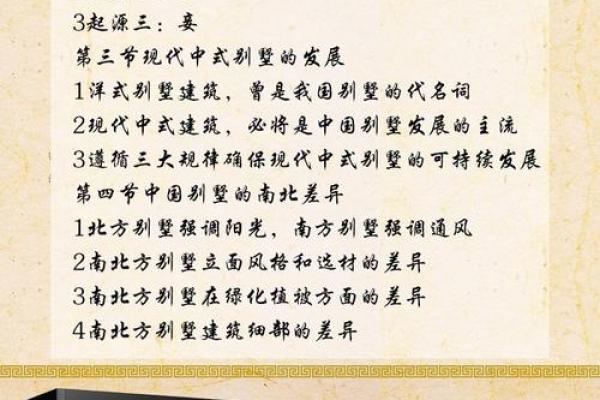 3起源三：妾
第三节现代中式别墅的发展
1洋式别墅建筑，曾是我国别墅的代名词
2现代中式建筑，必将是中国别墅发展的主流
3遵循三大规律确保现代中式别墅的可持续发展
第四节中国别墅的南北差异
1北方别墅强调阳光，南方别墅强调通风
2南北方别墅立面风格和选材的差异
3南北方别墅在绿化植被方面的差异
4南北方别墅建筑细部的差异